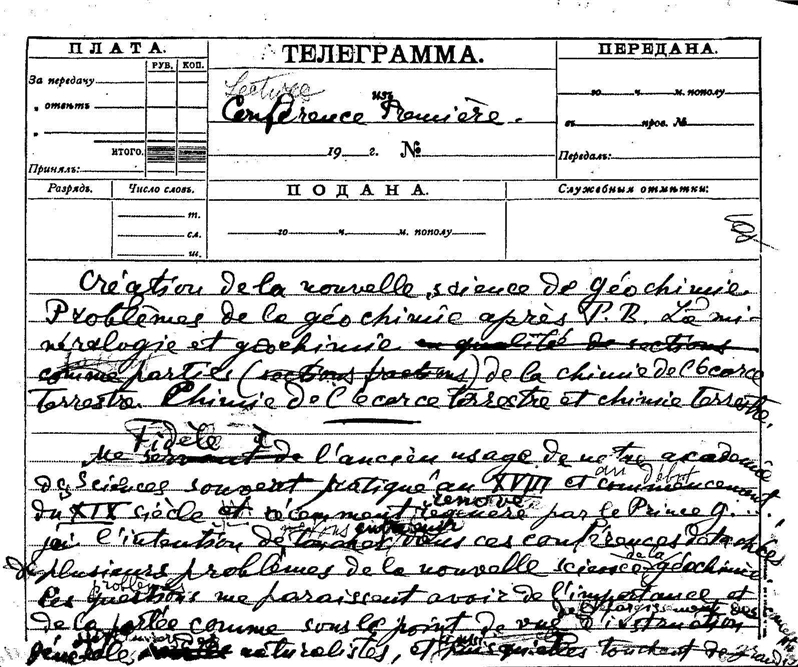 ПЛАТА.
РУБ. КОП.
За передачу
„ отвѣтъ
„
ИТОГО.
Принялъ:
ТЕЛЕГРАММА.
Lecture
изъ
Conférence Première.
19 г. №
ПЕРЕДАНА.
го ч. м. пополу
въ пров. №
Передалъ:
Разрядъ.
Число словъ.
т.
сл.
ш.
ПОДАНА.
го ч. м. пополу
Служебныя отмѣтки:
Création de la nouvelle science de géochimie.
Problèmes de la géochimie après P. B. La mi-
néralogie et géochimie en qualité de sections
comme parties (sections fractions) de la chimie de l'écorce
terrestre. Chimie de l'écorce terrestre et chimie terrestre.
Fidèle à
Me servant de l'ancien usage de notre académie
des sciences souvent pratiqué au XVIII et commencement
au début
du XIX siècle et récemment par le Prince G...
renové
j'ai l'intention de dans ces conférences
entretenir
plusieurs problèmes de la nouvelle science géochimie.
de la
problèmes
Les questions me paraissent avoir de l'importance et
de la portée comme sous le point de vue d'instruction
générale, naturalistes, et puisqu'elles touchent de